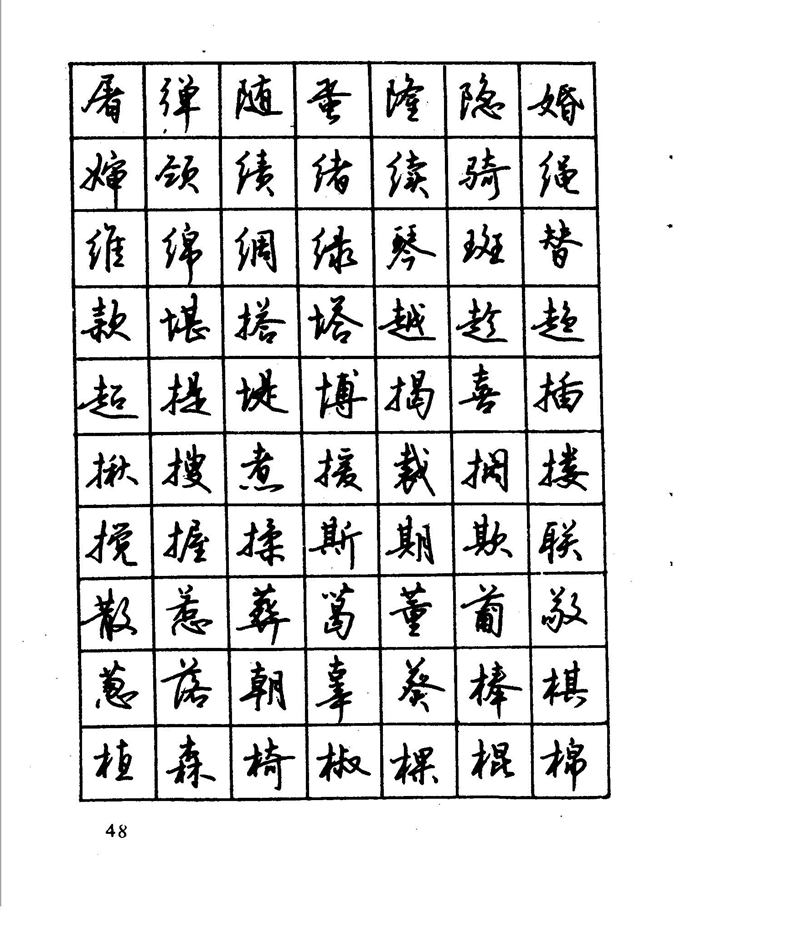 屠弹随蛋隆隐婚
婶颈绩绪续骑绳
维绵绸绿琴斑替
款堪搭塔越趁趋
超提堤博揭喜插
揪搜煮援裁搁搂
搅握揉斯期欺联
散惹葬葛董葡敬
葱落朝辜葵棒棋
植森椅椒棵棍棉
48